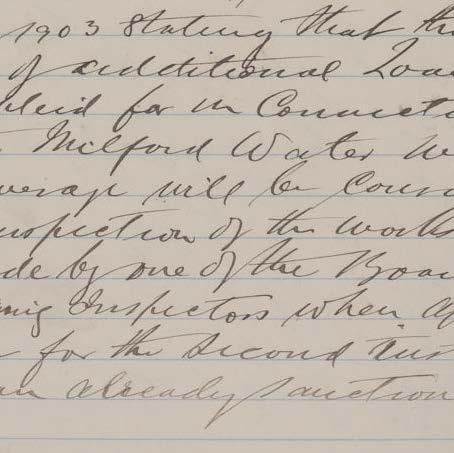 1903 stating that th
of additional Loa
plied for in Connecti
Milford Water W
werage will be Cons
nspection of the Works
de by one of the Boar
ring Inspectors when a
for the Second Inst
an already sanction